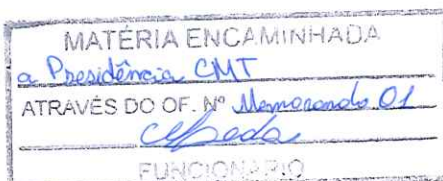 MATÉRIA ENCAMINHADA
a Presidência CMT
ATRAVÉS DO OF. Nº Memorando 01
FUNCIONÁRIO